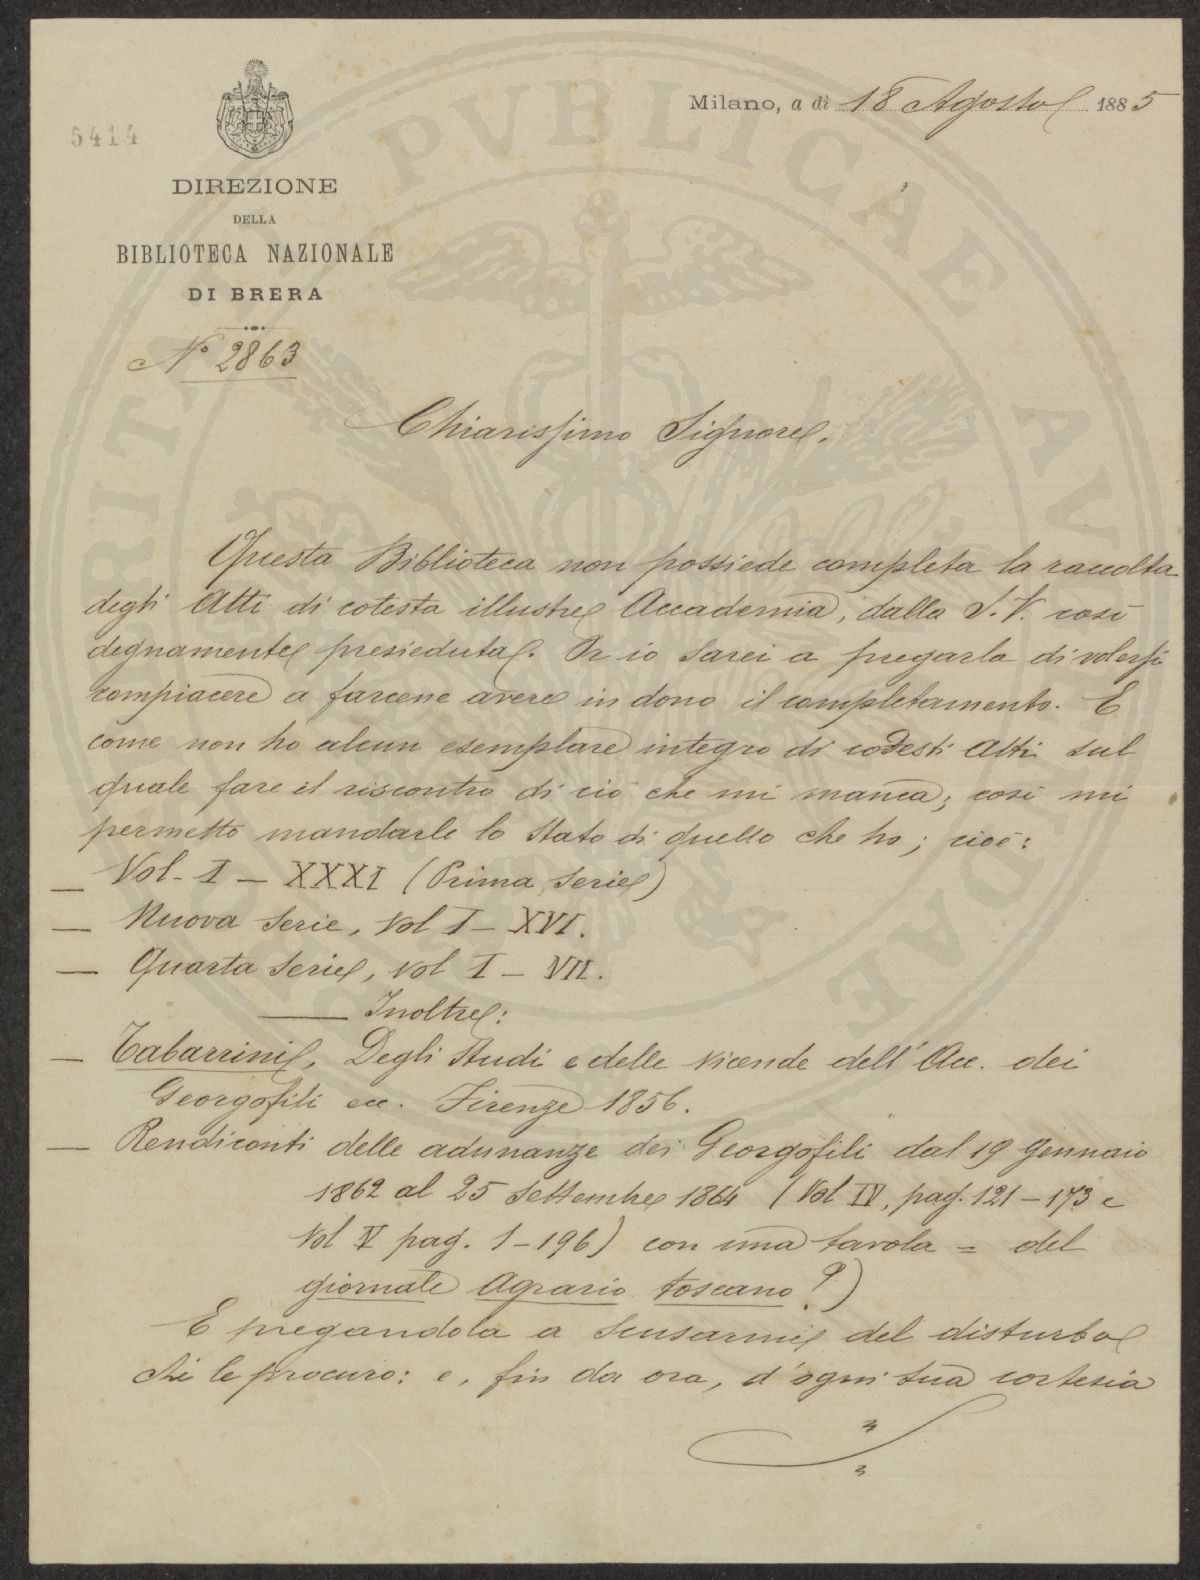 5414
Milano, a dì 18 Agosto 1885
DIREZIONE
DELLA
BIBLIOTECA NAZIONALE
DI BRERA
N° 2863
Chiarissimo Signore.
Questa Biblioteca non possiede completa la raccolta
degli Atti di cotesta illustre Accademia, dalla S.V. così
degnamente presieduta. Or io sarei a pregarla di volersi
compiacere a farcene avere in dono il completamento. E
come non ho alcun esemplare integro di codesti Atti sul
quale fare il riscontro di ciò che mi manca; così mi
permetto mandarle lo stato di quello che ho; cioè:
— Vol. I — XXXI (Prima Serie)
— Nuova Serie, Vol I — XVI.
— Quarta Serie, vol I — VII.
— Inoltre:
— Tabarrini, Degli Studi e delle vicende dell' Acc. dei
Georgofili ecc. Firenze 1856.
— Rendiconti delle adunanze dei Georgofili dal 19 Gennaio
1862 al 25 Settembre 1864 (Vol IV, pag. 121 — 173 e
Vol V pag. 1 — 196) con una tavola = del
giornale Agrario toscano?)
E pregandola a scusarmi del disturbo
chi le procuro: e, fin da ora, d'ogni sua cortesia